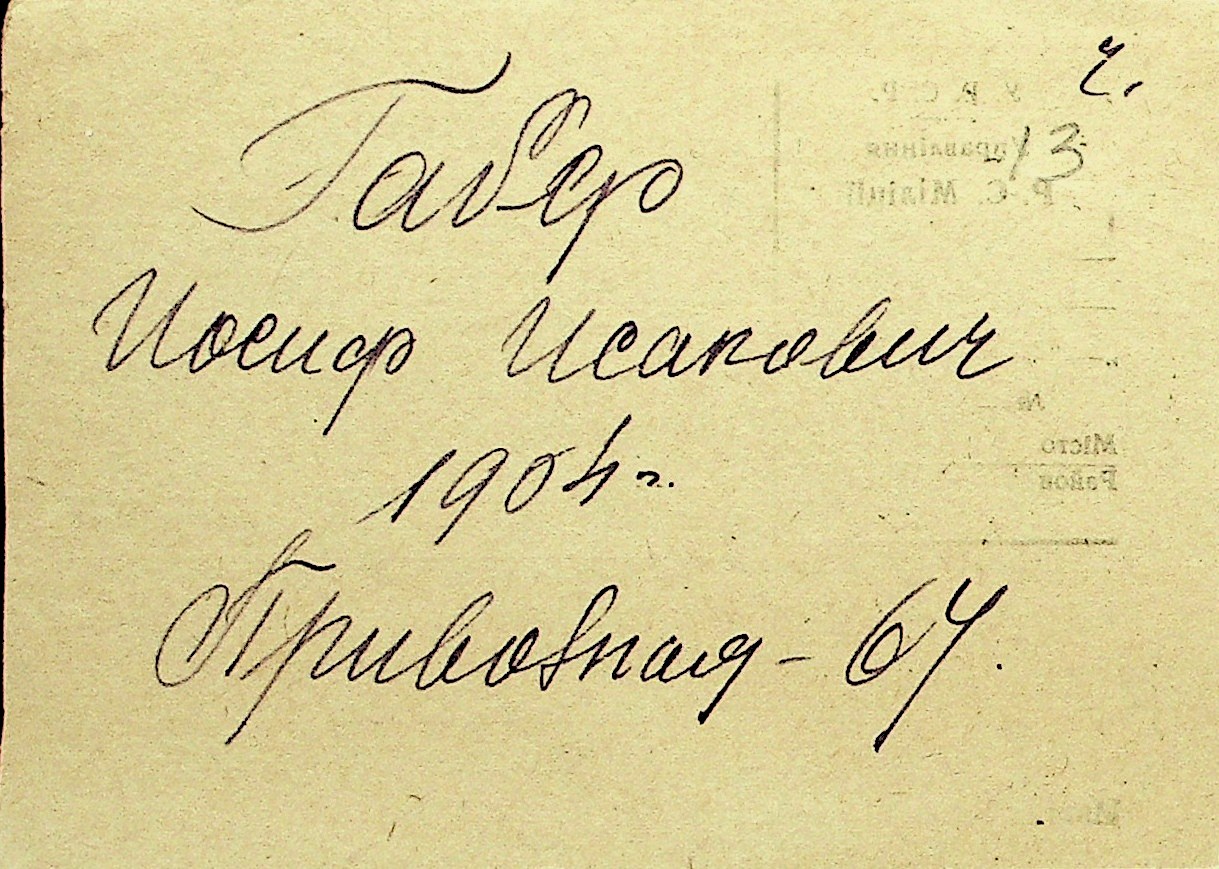 ч.
13
Габер
Иосиф Исакович
1904 г.
Привозная - 64.
У. Р. С. Р.
Управління
Р.-С. Міліції
№
Місто
Район